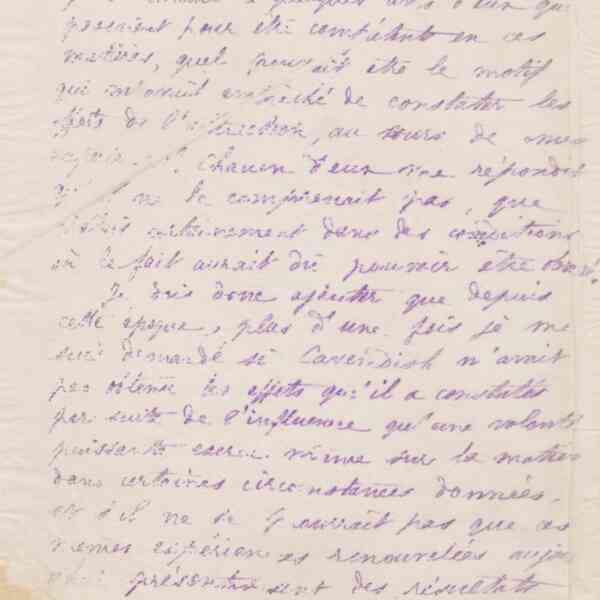 à quelques uns d'eux qui
passaient pour être compétents en ces
matières, quel pouvait être le motif
qui m'avait empêché de constater les
effets de l'attraction, au cours de mes
Chacun d'eux me répondit
qu'il ne le comprenait pas, que
j'étais certainement dans des conditions
où le fait aurait dû pouvoir être
Je dois donc ajouter que depuis
cette époque, plus d'une fois je me
suis demandé si Cavendish n'avait
pas obtenu les effets qu'il a constatés
par suite de l'influence qu'une volonté
puissante exerce même sur la matière
dans certaines circonstances données.
et s'il ne se pourrait pas que ces
mêmes expériences renouvelées
présentassent des résultats